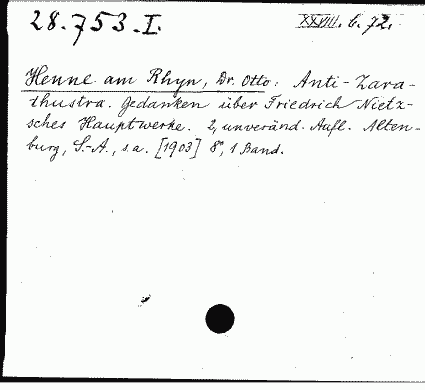 28.753.I. XXVIII. b. 72.
Henne am Rhyn, Dr. Otto: Anti-Zara-
thustra. Gedanken über Friedrich Nietz-
sches Hauptwerke. 2, unveränd. Aufl. Alten-
burg, S.-A., s.a. [1903] 8°, 1 Band.